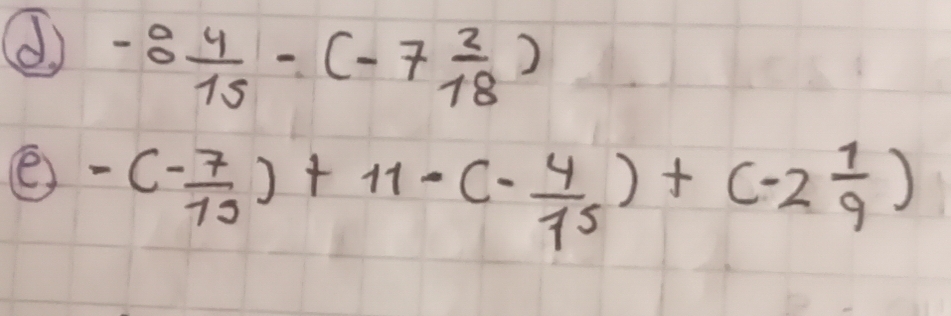 d) -8 4/15 - (-7 2/18)
e) -(-7/15) + 11 - (-4/15) + (-2 1/9)